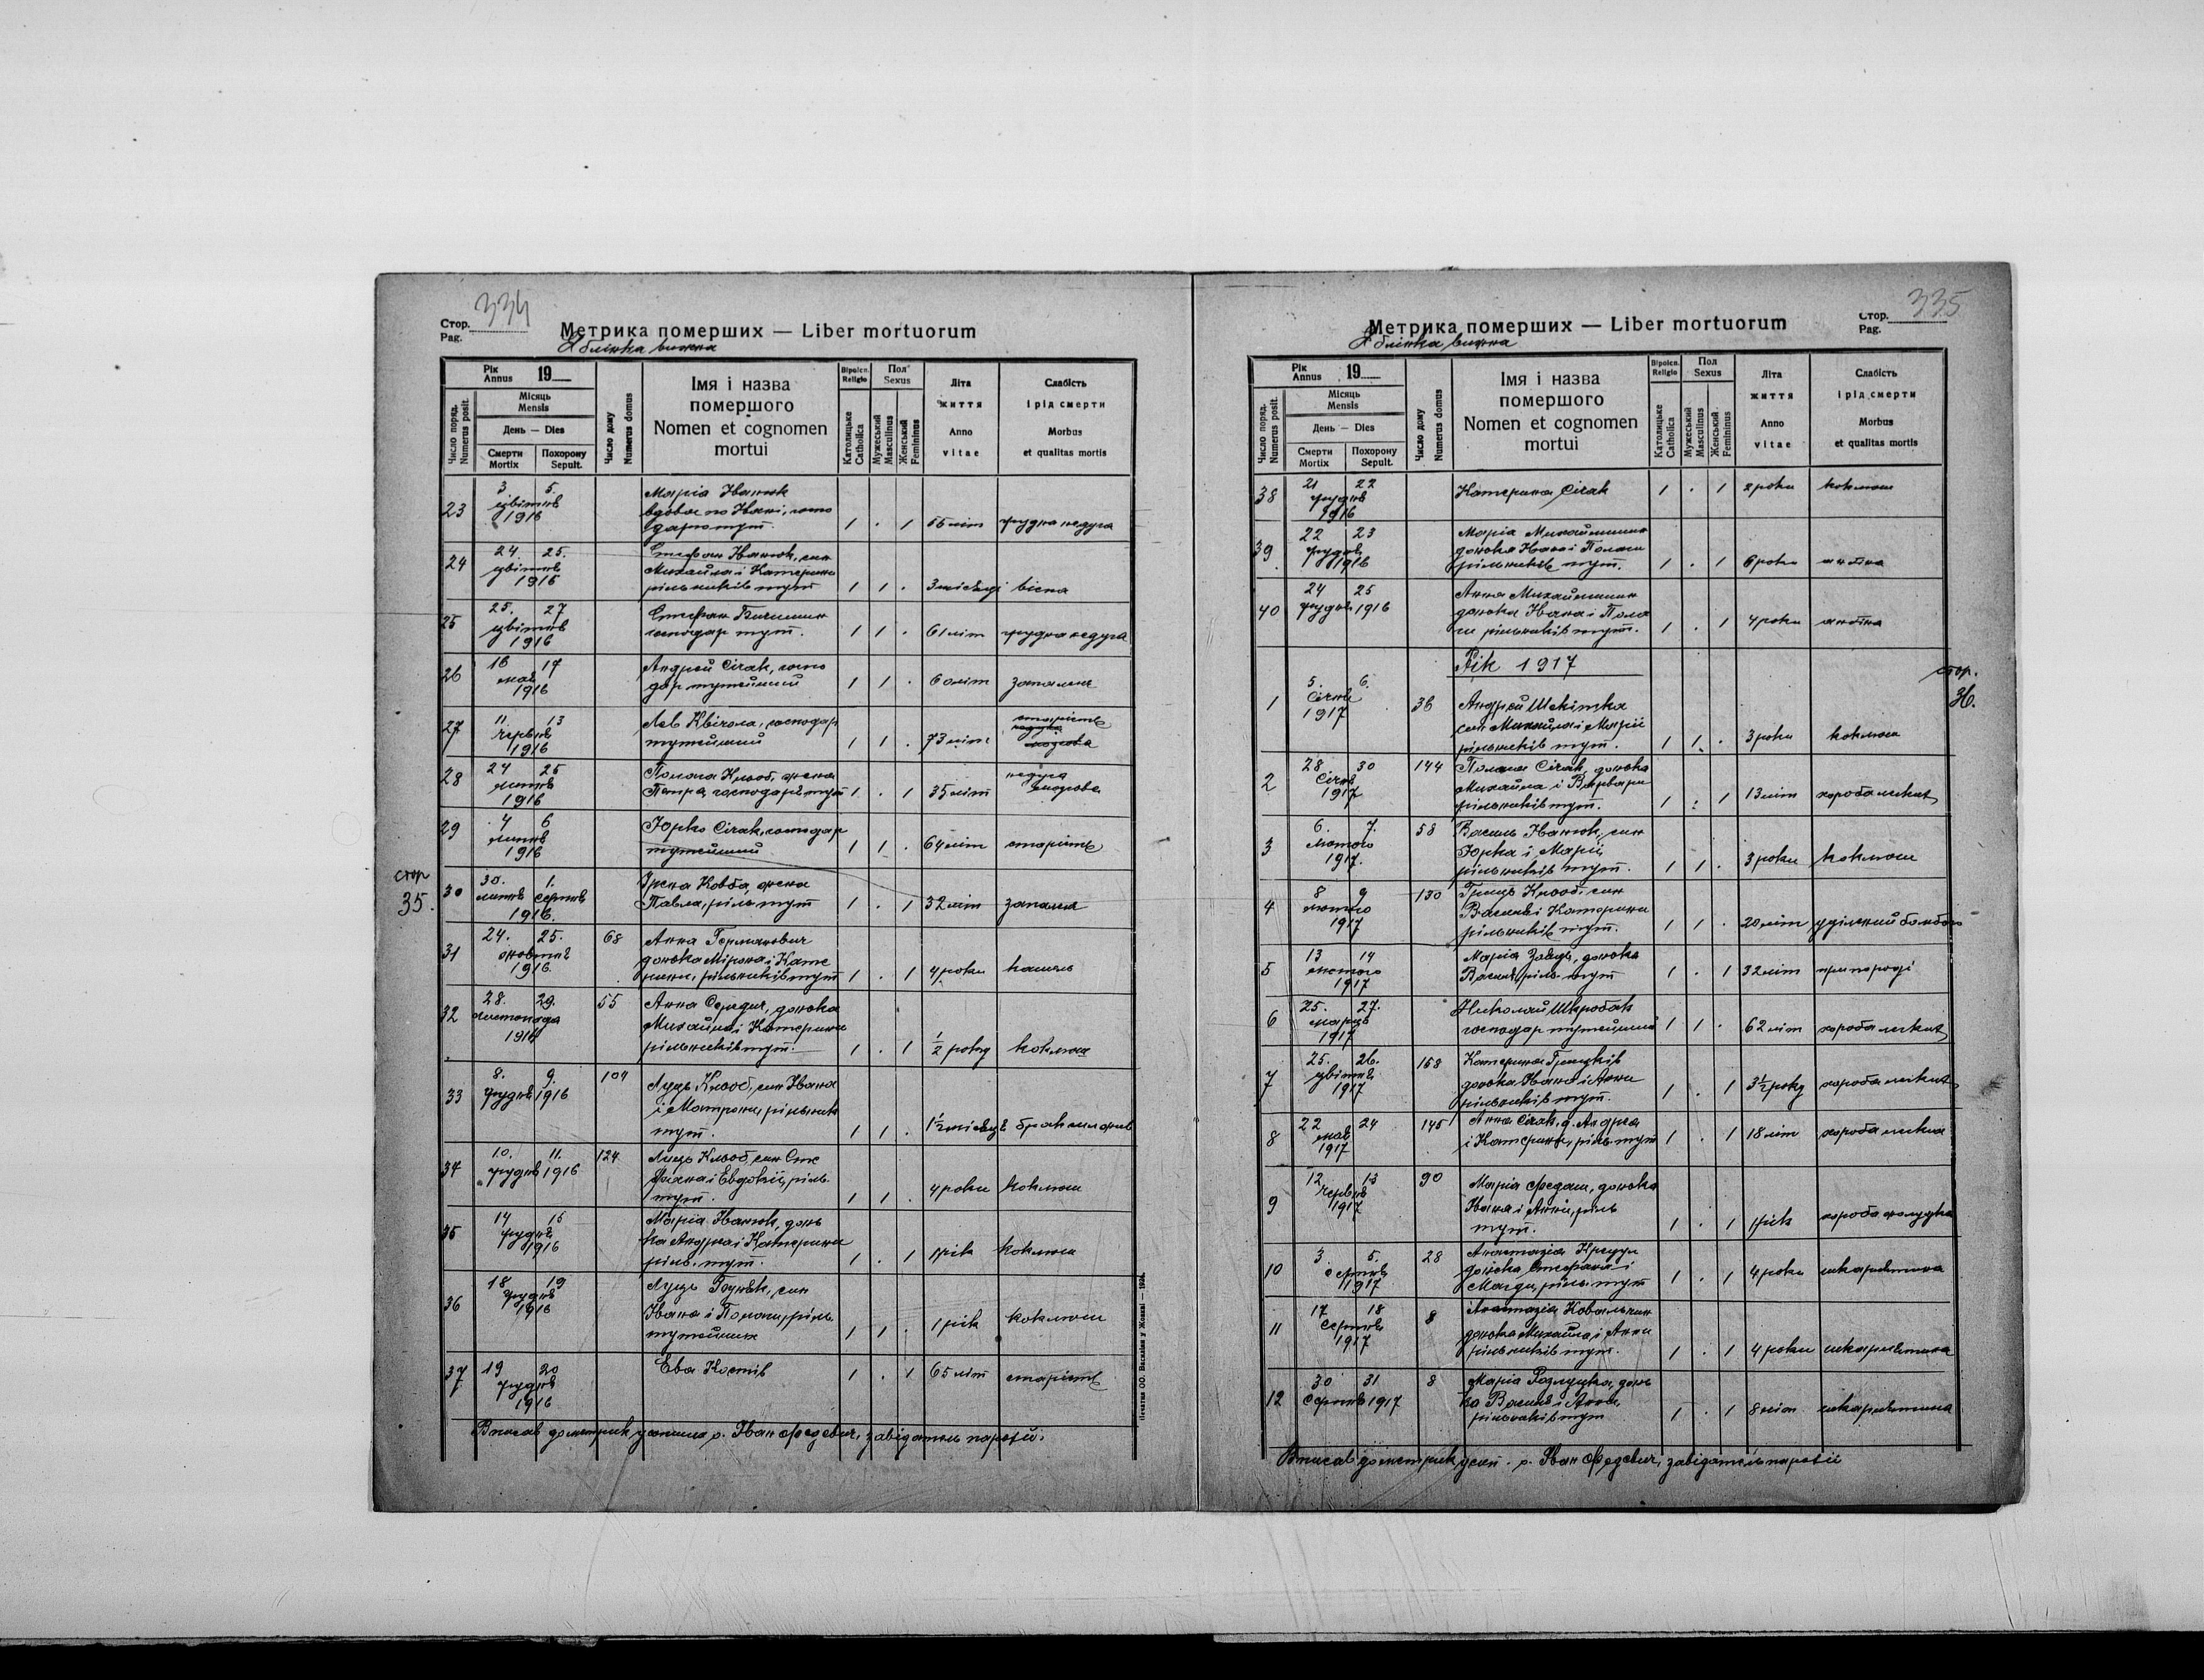 334
Стор.
Pag.
Метрика померших — Liber mortuorum
Яблінка вижна
Рік
Annus 19
Місяць
Mensis
День — Dies
Смерти
Mortix
Похорону
Sepult.
Число поряд.
Numerus posit.
Число дому
Numerus domus
Імя і назва
помершого
Nomen et cognomen
mortui
Віроісп.
Religio
Католицьке
Catholica
Пол
Sexus
Мужеський
Masculinus
Женський
Femininus
Літа
життя
Anno
vitae
Слабість
і рід смерти
Morbus
et qualitas mortis
23
3 5.
цвітня
1916
Марія Іванюк
вдова по Івані, госпо
дар тут.
1 . 1
55 літ
грудна недуга
24
24. 25.
цвітня
1916
Стефан Іванюк, син
Михайла і Катерини
рільників тут
1 1 .
3 місяці
віспа
25
25. 27
цвітня
1916
Стефан
господар тут.
1 1 .
61 літ
грудна недуга
26
16 17
мая
1916
Андрей Січак, госпо
дар тутейший
1 1 .
60 літ
запаленє
27
11 13
червня
1916
Лев Квічола, господар
тутейший
1 1 .
73 літ
старість
недуга
28
24 25
липня
1916
Полага Клюб, жена
Петра, господаря тут
1 . 1
35 літ
недуга
29
4 6
липня
1916
Юрко Січак, господар
тутейший
1 1 .
64 літ
старість
стор
35.
30
30. 1.
липня серпня
1916.
Ірена Ковба, жена
Павла, ріль. тут
1 . 1
32 літ
31
24. 25.
жовтня
1916
68
Анна Германович
донька Мірона і Кате
рини, рільників тут
1 . 1
4 роки
кашель
32
28. 29.
листопада
1916
55
Анна Середич, донька
Михайла і Катерини
рільників тут.
1 . 1
1/2 року
коклюш
33
8. 9.
грудня 1916
104
Луць Клюб, син Івана
і Матрони, рільник
тут.
1 1 .
1 1/2 місяця
34
10. 11.
грудня 1916
124
Луць Клюб, син Сте
фана і Евдокії, ріль.
тут.
1 1 .
4 роки
коклюш
35
14 15
грудня
1916
Марія Іванюк, донь
ка Андрея і Катерини
ріль. тут.
1 . 1
1 рік
коклюш
36
18 19
грудня
1916
Луць син
Івана і Полаги, ріль.
тутейших
1 1 .
1 рік
коклюш
37
19 20
грудня
1916
Ева Костів
1 . 1
65 літ
старість
Вписав до метрик усопших о. Іван Федевич, завідатель парохії.
Печатня ОО. Василіян у Жовкві — 1934.
335
Стор.
Pag.
Метрика померших — Liber mortuorum
Яблінка вижна
Рік
Annus 19
Місяць
Mensis
День — Dies
Смерти
Mortix
Похорону
Sepult.
Число поряд.
Numerus posit.
Число дому
Numerus domus
Імя і назва
помершого
Nomen et cognomen
mortui
Віроісп.
Religio
Католицьке
Catholica
Пол
Sexus
Мужеський
Masculinus
Женський
Femininus
Літа
життя
Anno
vitae
Слабість
і рід смерти
Morbus
et qualitas mortis
38
21 22
грудня
1916
Катерина Січак
1 . 1
2 роки
коклюш
39
22 23
грудня
1916
Марія Михайлишин
донька Івана і Полаги
рільників тут.
1 . 1
6 роки
40
24 25
грудня 1916
Анна Михайлишин
донька Івана і Пола
ги рільників тут.
1 . 1
4 роки
Рік 1917
стор.
36.
1
5. 6.
Січня
1917
36
Андрей Шекітка
син Михайла і Марії
рільників тут.
1 1 .
3 роки
коклюш
2
28 30
Січня
1917
144
Полага Січак, донька
Михайла і Варвари
рільників тут.
1 . 1
13 літ
хороба легких
3
6. 7.
Лютого
1917.
58
Василь Іванюк, син
Юрка і Марії,
рільників тут.
1 1 .
3 роки
коклюш
4
8 9
лютого
1917
130
Гриць Клюб, син
Василя і Катерини
рільників тут.
1 1 .
20 літ
5
13 14
лютого
1917
Марія Завіць, донька
Василя, ріль. тут
1 . 1
32 літ
при породі
6
25. 27.
марця
1917
Николай Шкробак
господар тутейший
1 1 .
62 літ
хороба легких
7
25. 26.
цвітня
1917
158
Катерина Грицьків
донька Івана і Анни
рільників тут.
1 . 1
3 1/2 року
хороба легких
8
22 24
мая
1917
145
Анна Січак, д. Андрея
і Катерини, ріль. тут
1 . 1
18 літ
хороба легких
9
12 13
червня
1917
90
Марія Федаш, донька
Івана і Анни, ріль
тут.
1 . 1
1 рік
хороба жолудка
10
3 5.
серпня
1917
28
Анастазія
донька Стефана і
Магди, ріль. тут
1 . 1
4 роки
шкарлятина
11
17 18
Серпня
1917
8
Анастазія Ковальчин
донька Михайла і Анни
рільників тут.
1 . 1
4 роки
шкарлятина
12
30 31
Серпня 1917
8
Марія Розлуцка, донь
ка Василя і Анни,
рільників тут
1 . 1
8 літ
шкарлятина
Вписав до метрик усоп. о. Іван Федевич, завідатель парохії